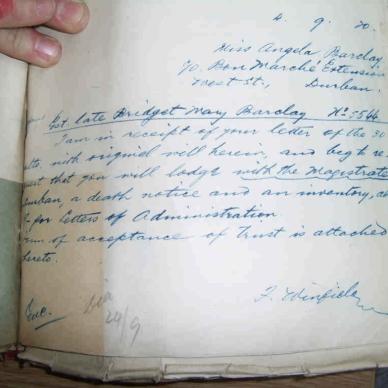 4. 9. 20.
Miss Angela Barclay
c/o Bon Marché Extension
West St., Durban.
Est. late Bridget May Barclay No. 5564
I am in receipt of your letter of the
with original will herein, and beg to re
uest that you will lodge with the Magistrate
Durban, a death notice and an inventory,
for Letters of Administration
of acceptance of Trust is attached
hereto.
F. Winfield
Enc.
24/9